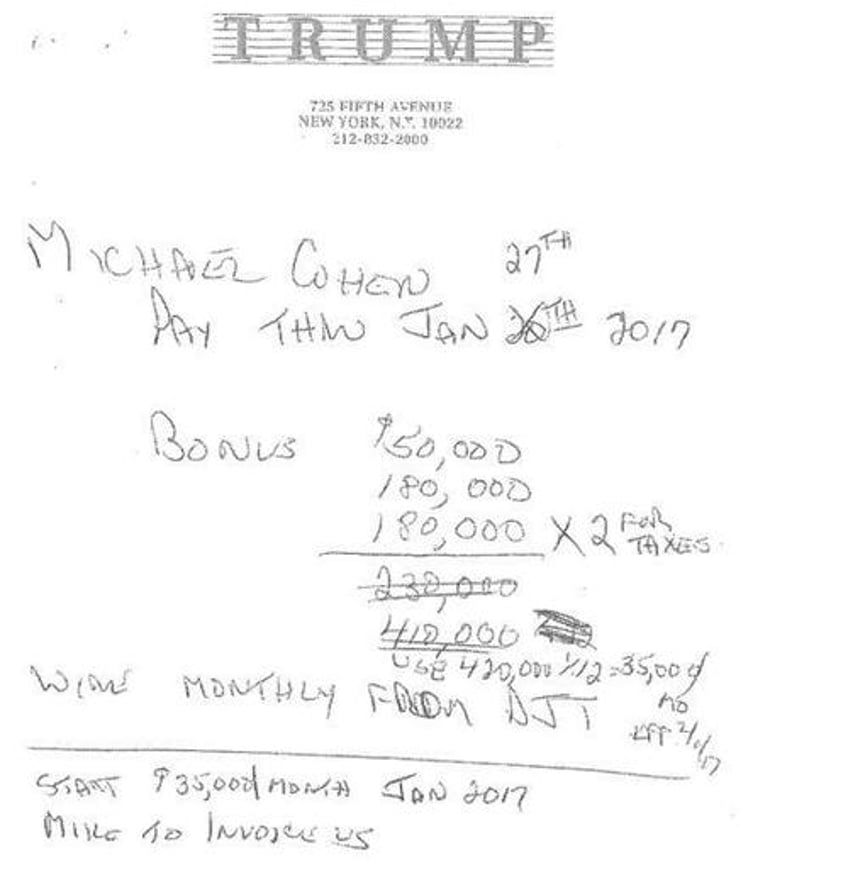 TRUMP
725 FIFTH AVENUE
NEW YORK, N.Y. 10022
212-832-2000
MICHAEL COHEN 27TH
PAY THRU JAN TH 2017
BONUS $50,000
180,000
180,000 X 2 FOR TAXES
230,000
410,000
USE 420,000 1/12 = 35,000/
MO
WIRE MONTHLY FROM DJT
EFF 2/1/17
START $35,000/MONTH JAN 2017
MIKE TO INVOICE US